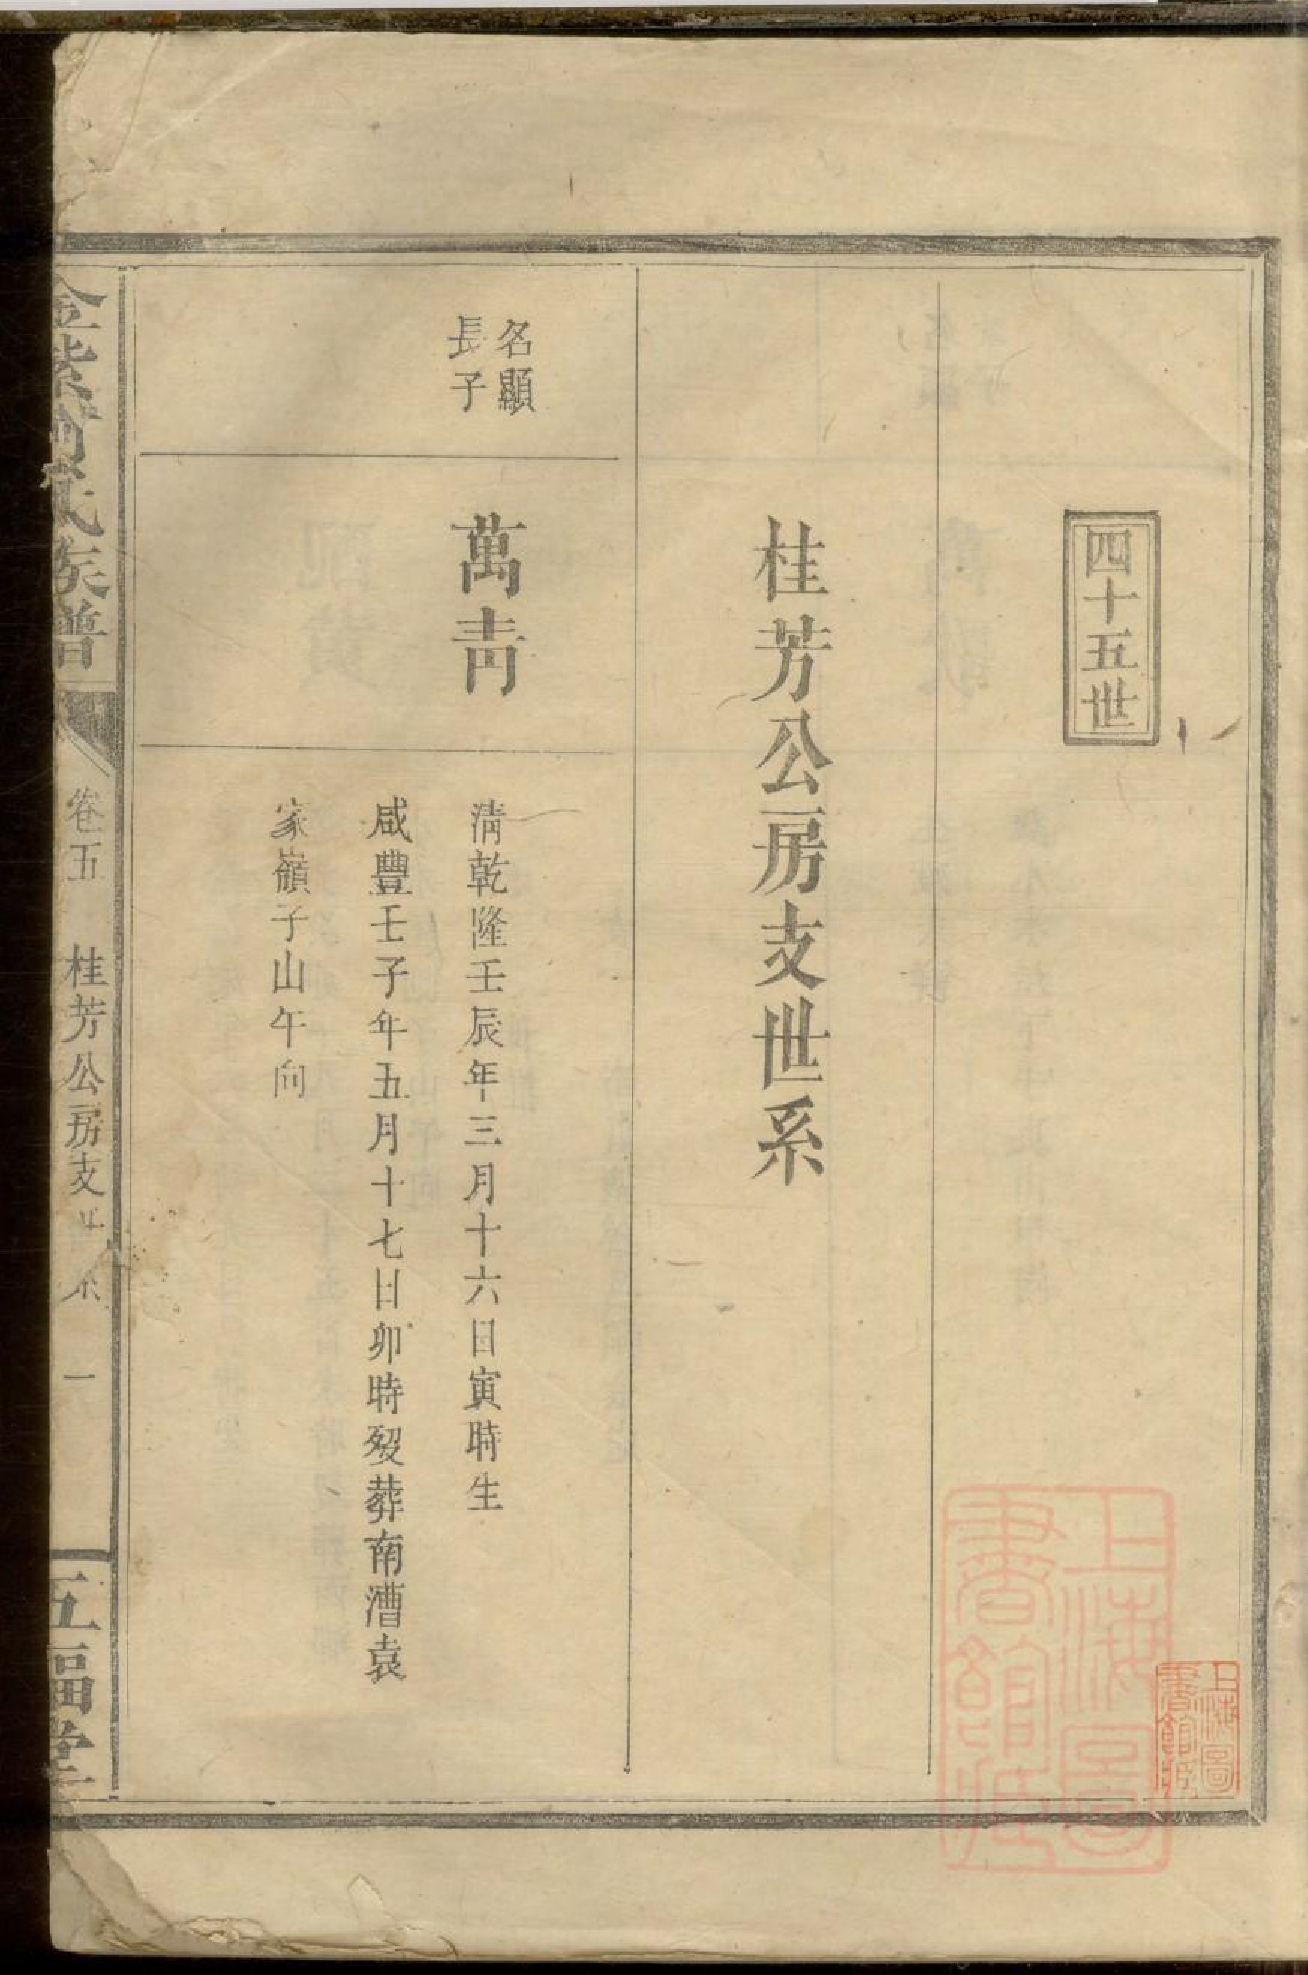 四十五世
桂芳公房支世系
名顯
長子
萬青
清乾隆壬辰年三月十六日寅時生
咸豐壬子年五月十七日卯時歿葬南漕袁
家嶺子山午向
金紫 氏族譜
卷五 桂芳公房支世系 一
五福堂
上海圖
書館藏
上海圖
書館藏